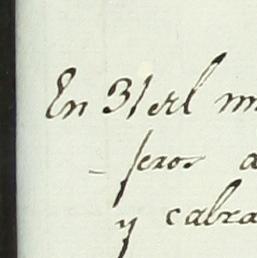 En 31 del m
feros a
y cabra